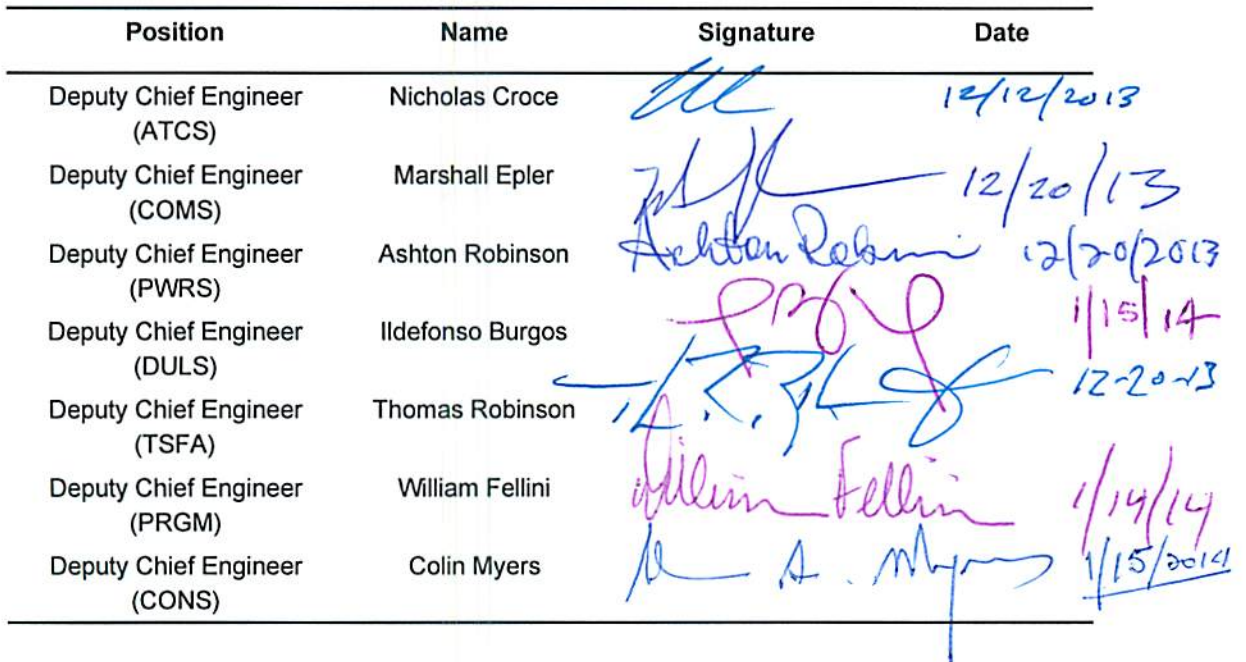 Position Name Signature Date
Deputy Chief Engineer Nicholas Croce 12/12/2013
(ATCS)
Deputy Chief Engineer Marshall Epler 12/20/13
(COMS)
Deputy Chief Engineer Ashton Robinson Ashton Robinson 12/20/2013
(PWRS)
Deputy Chief Engineer Ildefonso Burgos 1/15/14
(DULS)
Deputy Chief Engineer Thomas Robinson 12-20-13
(TSFA)
Deputy Chief Engineer William Fellini William Fellini 1/14/14
(PRGM)
Deputy Chief Engineer Colin Myers A. Myers 1/15/2014
(CONS)